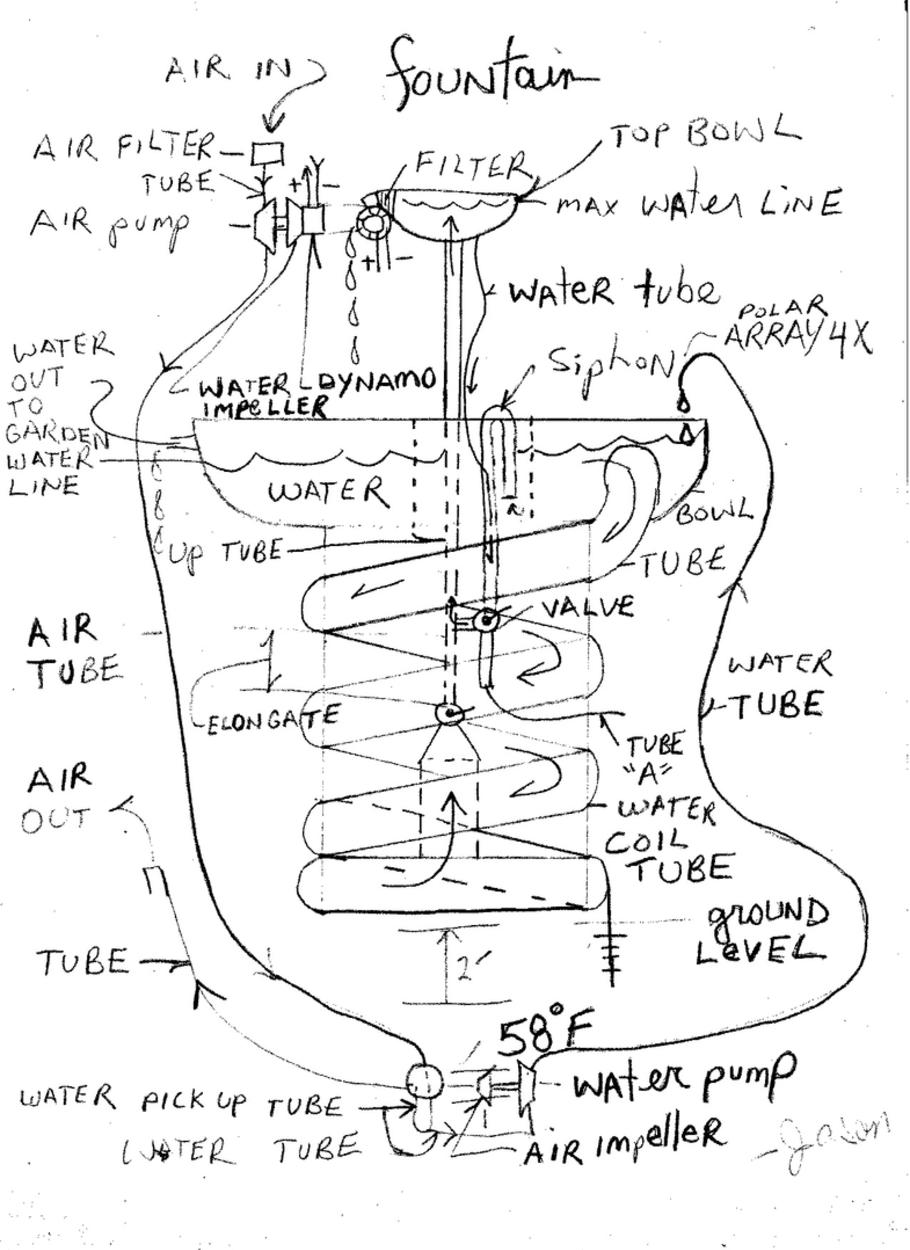 fountain
AIR IN
AIR FILTER
TUBE
AIR pump
+ -
FILTER
TOP BOWL
MAX WATER LINE
+ -
WATER tube
POLAR
ARRAY 4X
Siphon
WATER
OUT
TO
GARDEN
WATER
LINE
WATER DYNAMO
IMPELLER
WATER
BOWL
UP TUBE
TUBE
VALVE
AIR
TUBE
ELONGATE
WATER
TUBE
TUBE
"A"
AIR
OUT
WATER
COIL
TUBE
GROUND
LEVEL
TUBE
2'
58°F
WATER PUMP
WATER PICK UP TUBE
WATER TUBE
AIR IMPELLER
-Jason